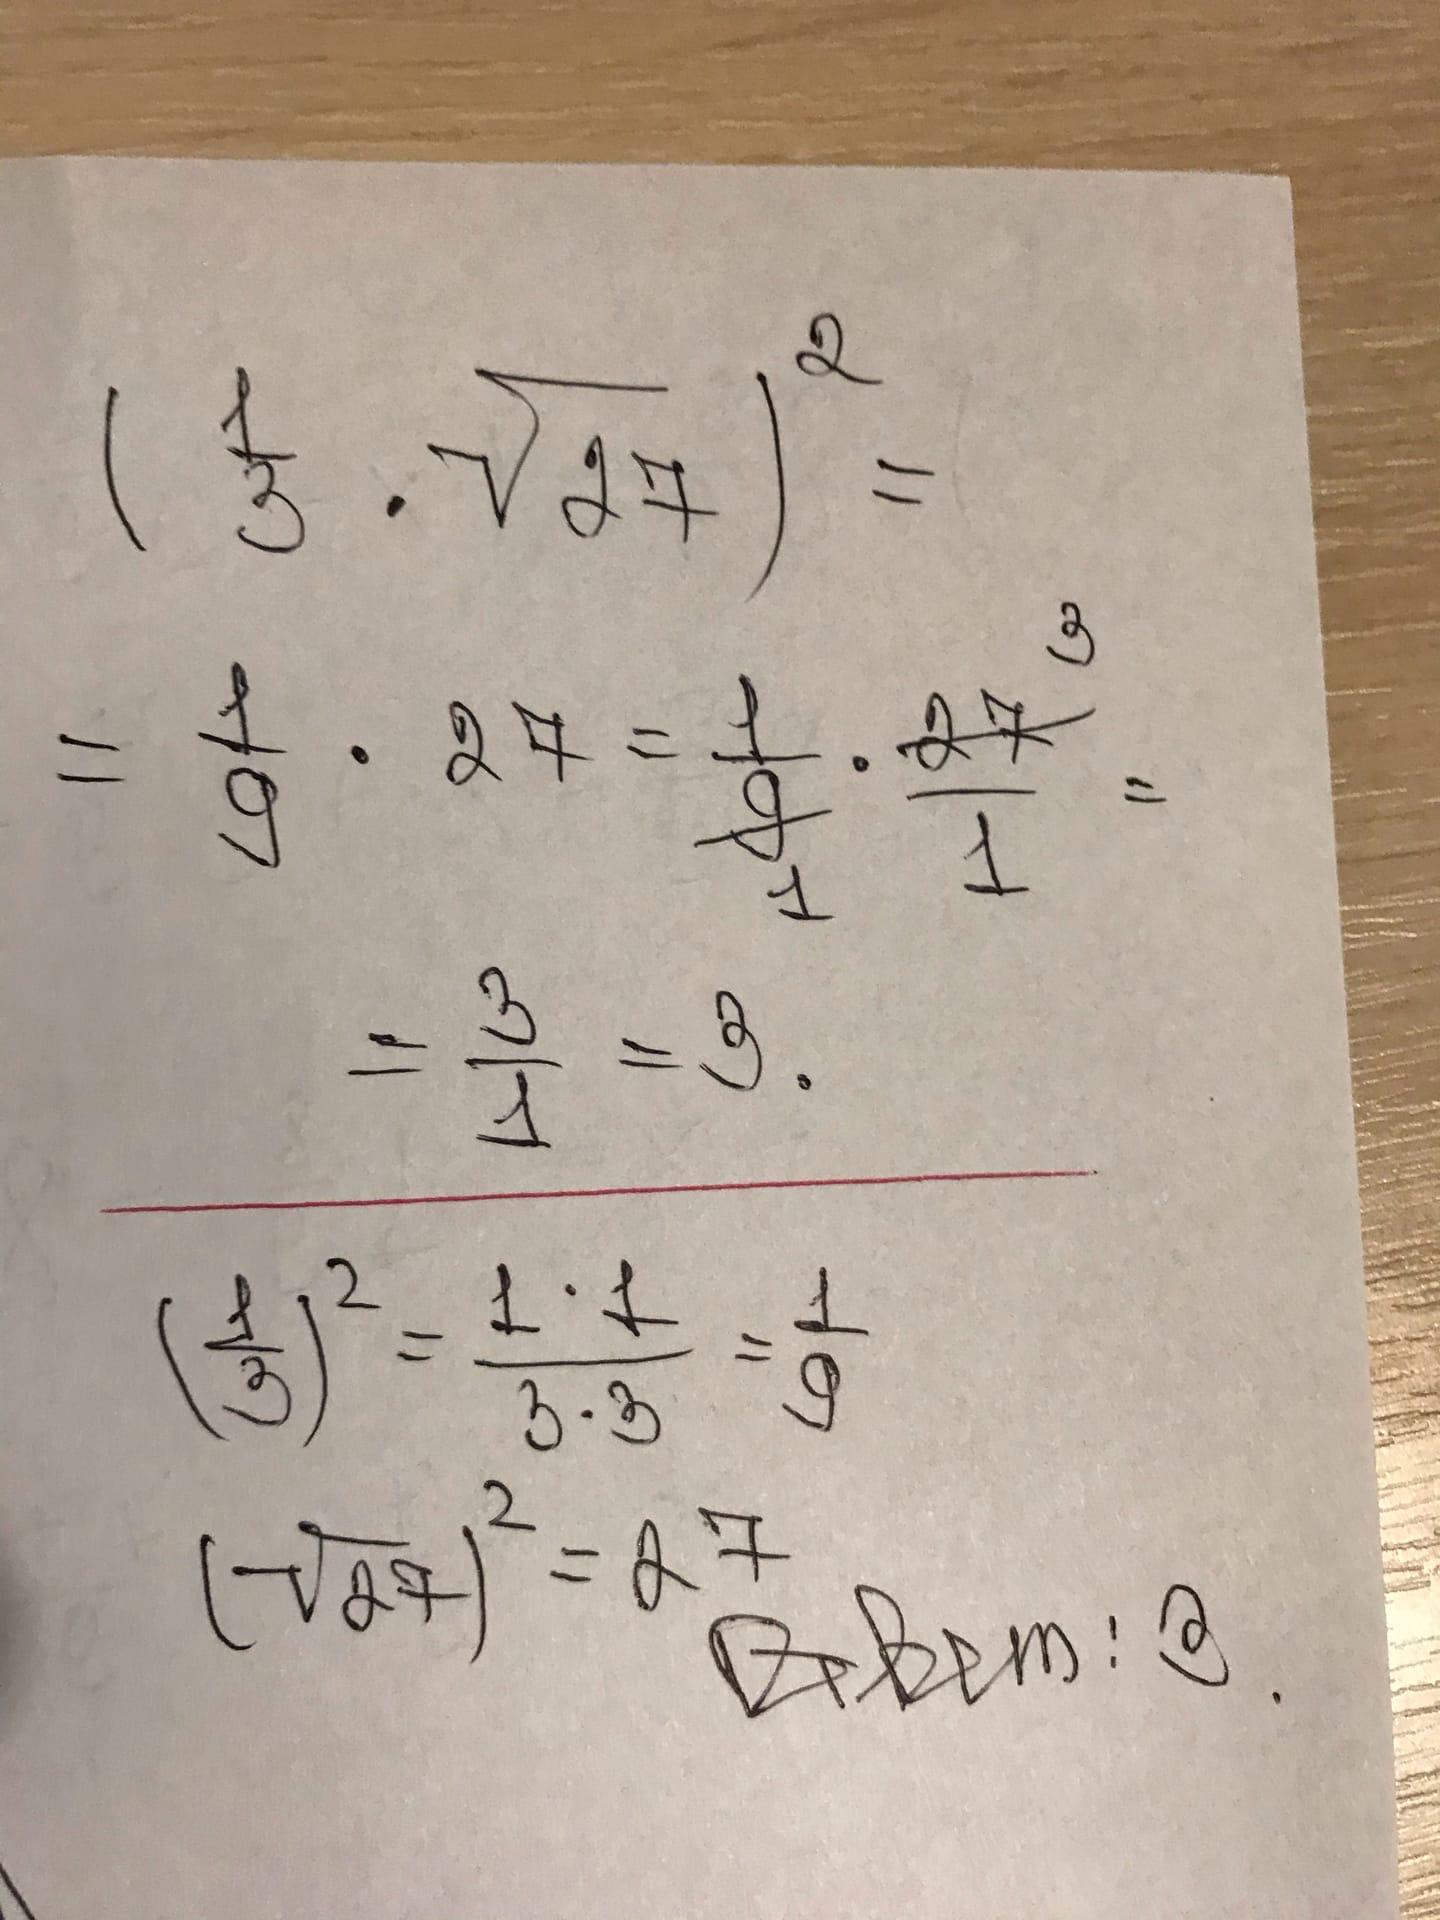 (1/3 · √27)² =
= 1/9 · 27 = 1/9 1 · 27/1 3 =
= 3/1 = 3.
(1/3)² = 1·1/3·3 = 1/9
(√27)² = 27
Ответ: 3.